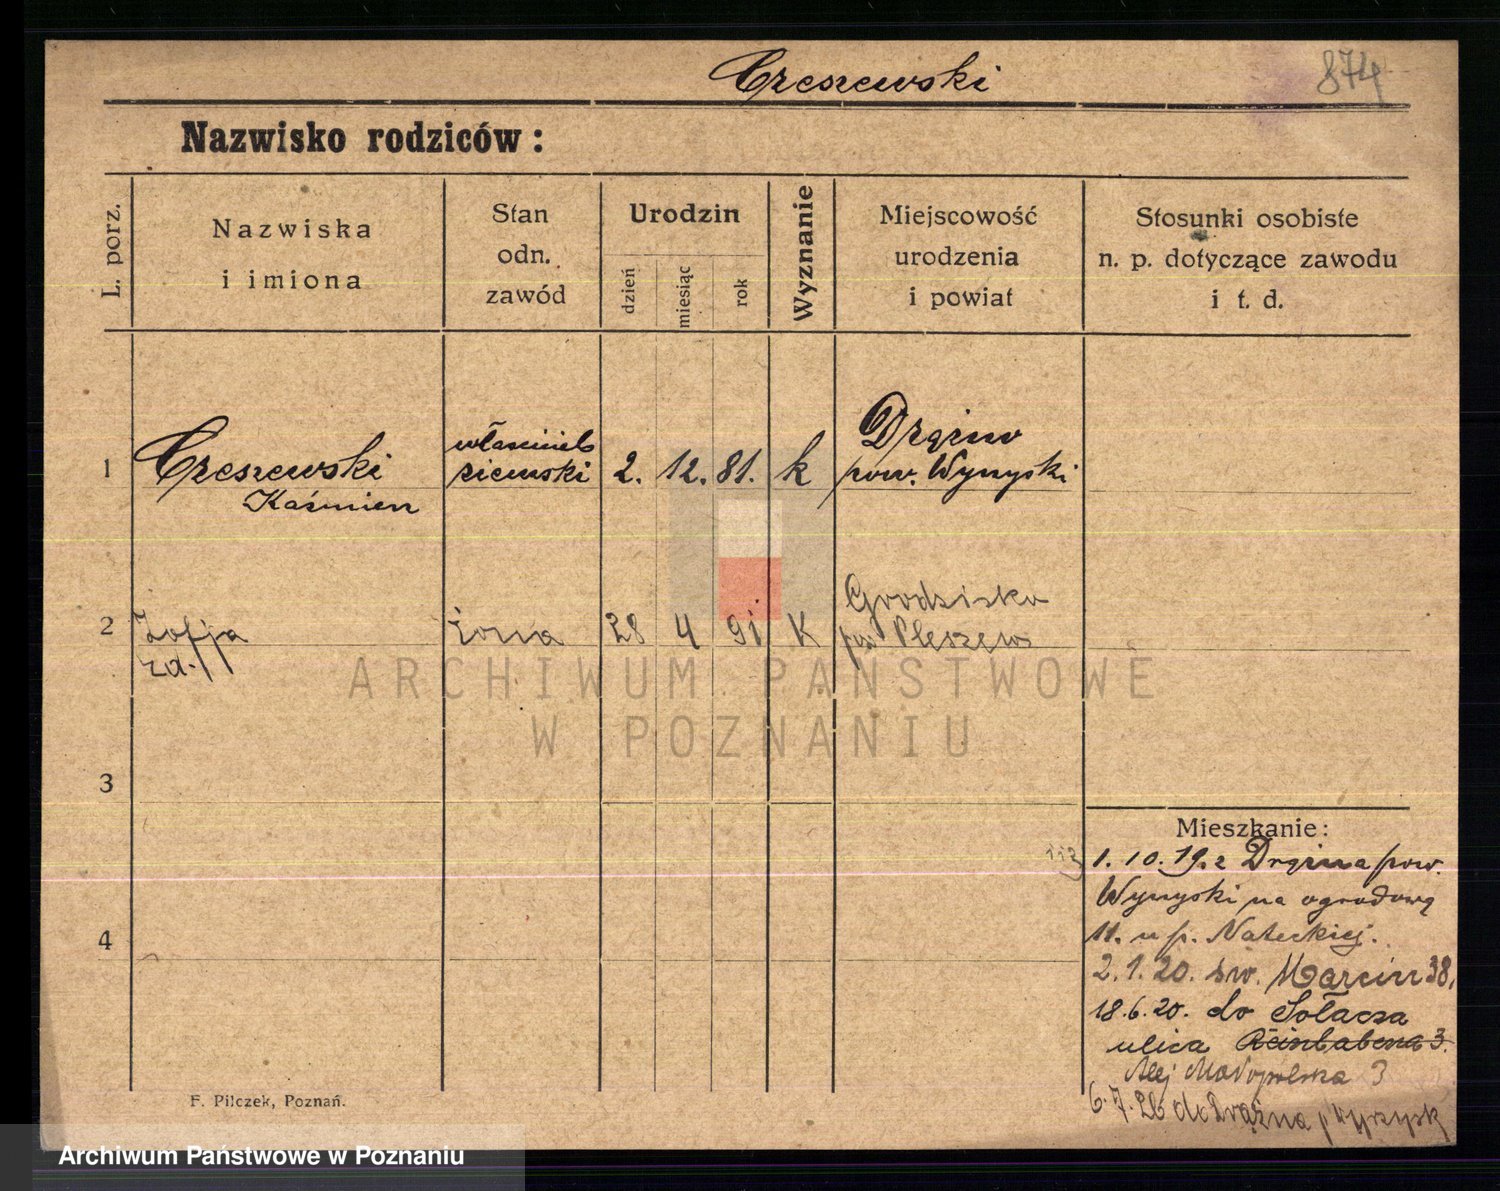 Czeszewski 874
Nazwisko rodziców:
L. porz.
Nazwiska
i imiona
Stan
odn.
zawód
Urodzin
dzień
miesiąc
rok
Wyznanie
Miejscowość
urodzenia
i powiat
Stosunki osobiste
n. p. dotyczące zawodu
i t. d.
1
Czeszewski
Kaźmierz
właściciel
ziemski
2. 12. 81. k
Drążno
pow. Wyrzyski
2
Zofja
żona
28 4 91 K
Grodzisko
pow. Pleszew
3
4
Mieszkanie:
113
1. 10. 19. z Drążna pow.
Wyrzyski na ogrodową
11. u p. Nateckiej.
2. 1. 20. św. Marcin 38,
18. 6. 20. do Sołacza
ulica 3.
Alej Małopolska 3
6. 7. 26 do Drążna p Wyrzysk
F. Pilczek, Poznań.
ARCHIWUM PAŃSTWOWE
W POZNANIU
Archiwum Państwowe w Poznaniu